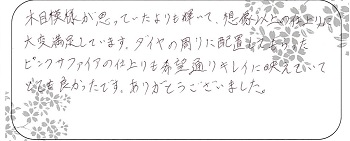 木目模様が思っていたよりも輝いて、想像以上の仕上りに
大変満足しています。ダイヤの周りに配置してもらった
ピンクサファイアの仕上りも希望通りキレイに映えていて
とても良かったです。ありがとうございました。